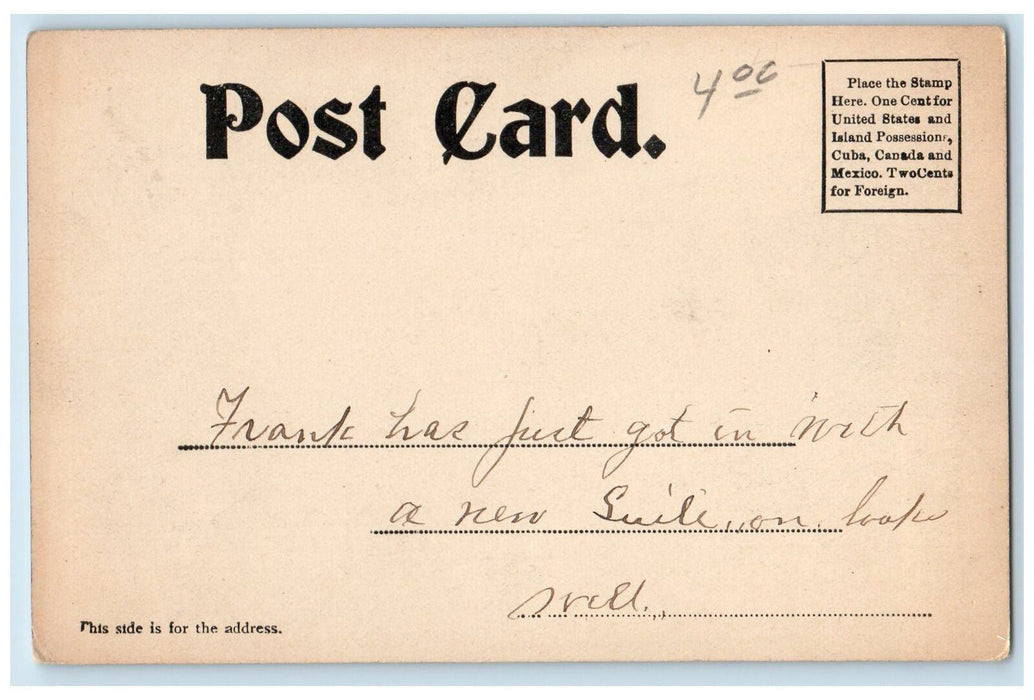 Post Card.
4 00
Place the Stamp
Here. One Cent for
United States and
Island Possessions,
Cuba, Canada and
Mexico. Two Cents
for Foreign.
Frank has just got in with
a new Suite, on looks
swell.
This side is for the address.